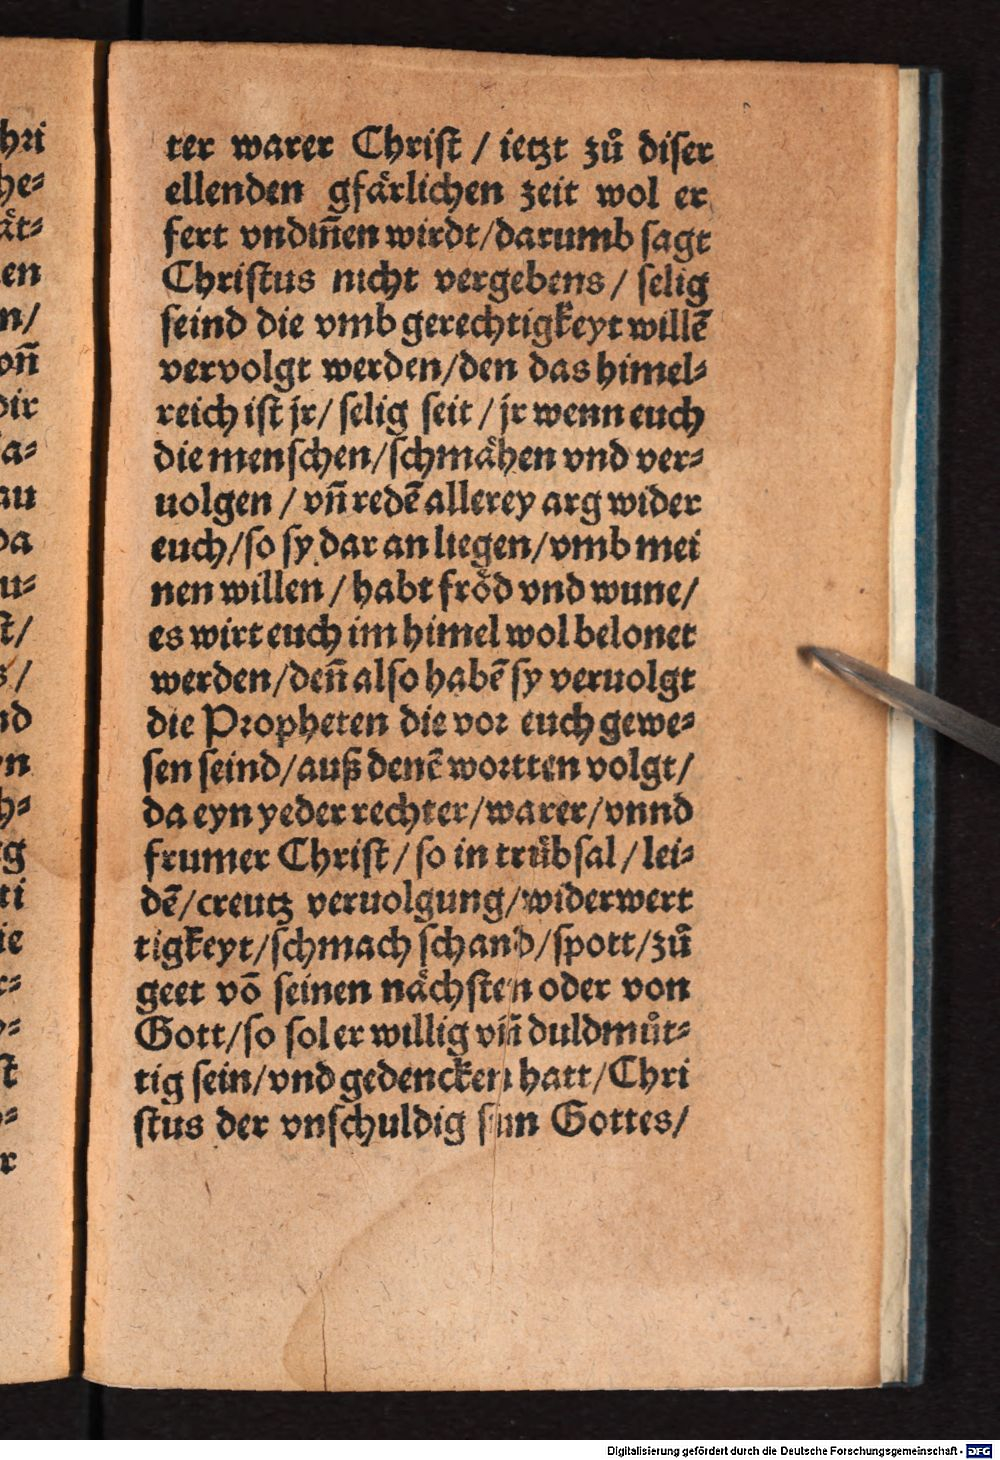 ter warer Christ / ietzt zuͦ diser
ellenden gfaͤrlichen zeit wol er
fert vndiñen wirdt/darumb sagt
Christus nicht vergebens / selig
seind die vmb gerechtigkeyt willẽ
vervolgt werden/den das himel⸗
reich ist jr/ selig seit / jr wenn euch
die menschen/schmaͤhen vnd ver⸗
uolgen / vñ redẽ allerey arg wider
euch/so sy dar an liegen/vmb mei
nen willen / habt froͤd vnd wune/
es wirt euch im himel wol belonet
werden/deñ also habẽ sy veruolgt
die Propheten die vor euch gewe⸗
sen seind/auß denẽ wortten volgt/
da eyn yeder rechter/warer/vnnd
frumer Christ/ so in truͤbsal / lei⸗
dẽ/creutz veruolgung/widerwert
tigkeyt/schmach schand/spott/zuͦ
geet võ seinen naͤchsten oder von
Gott/so sol er willig vñ duldmuͦt⸗
tig sein/vnd gedencken hatt/Chri
stus der vnschuldig sun Gottes/
hri
he⸗
aͤt⸗
en
n/
oñ
dir
a⸗
au
da
u⸗
st/
s/
nd
en
h⸗
g
ti
ie
r⸗
st
r
Digitalisierung gefördert durch die Deutsche Forschungsgemeinschaft - DFG